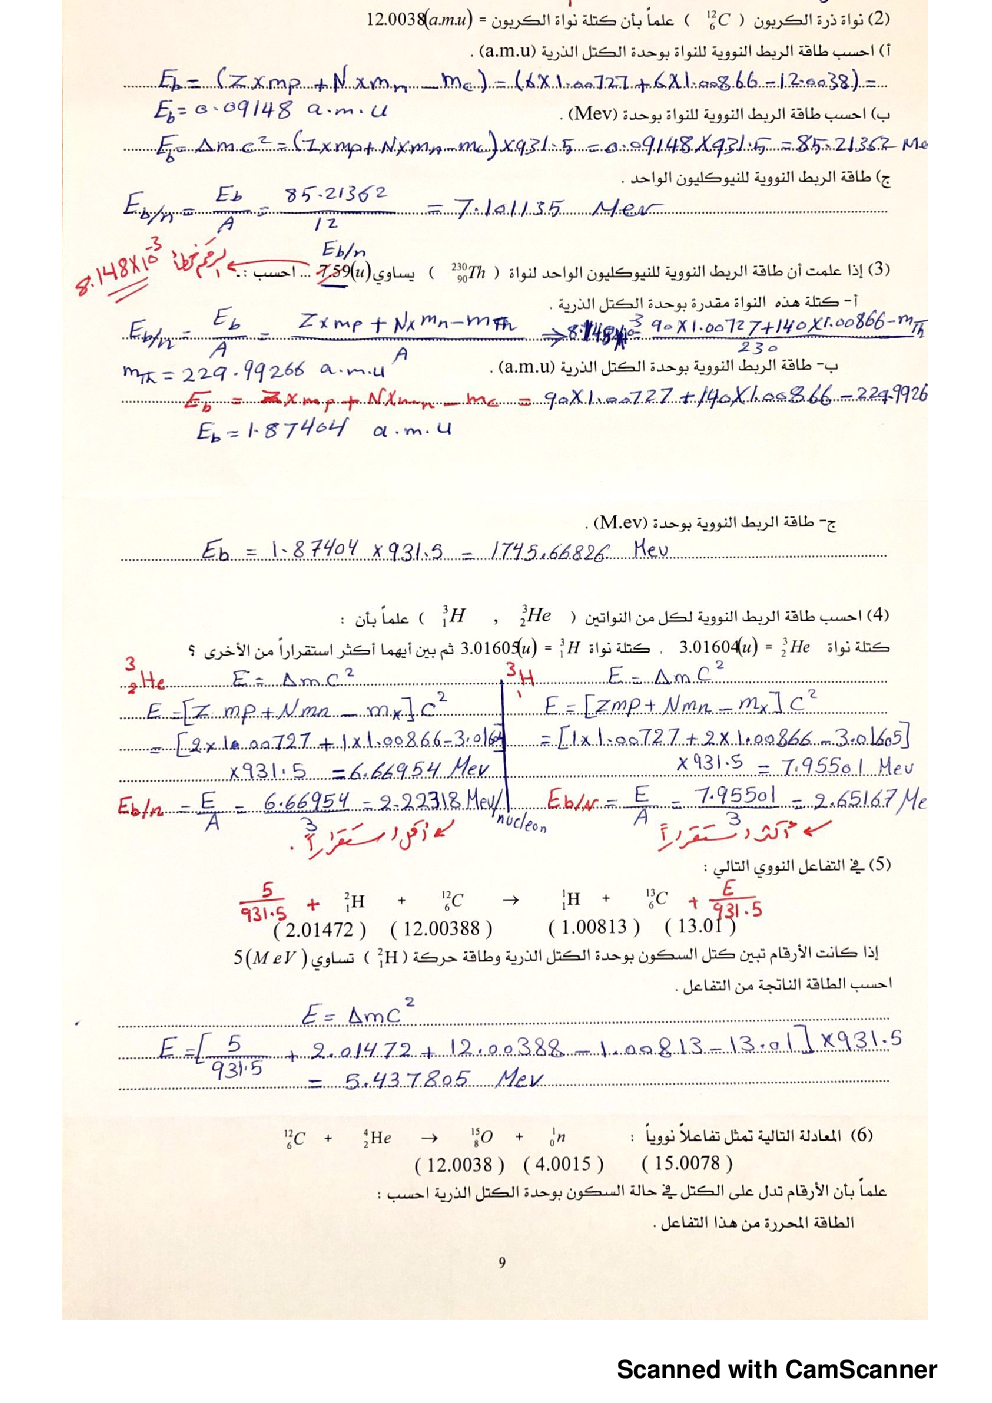 (2) نواة ذرة الكربون ( ¹²₆C ) علماً بأن كتلة نواة الكربون = 12.0038(a.m.u)
أ) احسب طاقة الربط النووية للنواة بوحدة الكتل الذرية (a.m.u) .
Eb = (Z x mp + N x mn - mc) = (6X1.00727 + 6X1.00866 - 12.0038) =
Eb = 0.09148 a.m.u
ب) احسب طاقة الربط النووية للنواة بوحدة (Mev) .
Eb = Δm c² = (Z x mp + N x mn - mc) X 931.5 = 0.09148 X 931.5 = 85.21362 Me
ج) طاقة الربط النووية للنيوكليون الواحد .
Eb/n = Eb/A = 85.21362/12 = 7.101135 Mev
Eb/n
8.148X10⁻³ الرقم خطأ
(3) إذا علمت أن طاقة الربط النووية للنيوكليون الواحد لنواة ( ²³⁰₉₀Th ) يساوي 7.59(u) ... احسب :
أ- كتلة هذه النواة مقدرة بوحدة الكتل الذرية .
Eb/n = Eb/A = (Z x mp + N x mn - mTh)/A ⇒ 8.148x10⁻³ = (90 X 1.00727 + 140 X 1.00866 - mTh)/230
mTh = 229.99266 a.m.u
ب- طاقة الربط النووية بوحدة الكتل الذرية (a.m.u) .
Eb = Z x mp + N x mn - mc = 90 X 1.00727 + 140 X 1.00866 - 229.9926
Eb = 1.87404 a.m.u
ج- طاقة الربط النووية بوحدة (M.ev) .
Eb = 1.87404 x 931.5 = 1745.66826 Mev
(4) احسب طاقة الربط النووية لكل من النواتين ( ³₂He , ³₁H ) علماً بأن :
كتلة نواة ³₂He = 3.01604(u) . كتلة نواة ³₁H = 3.01605(u) ثم بين أيهما أكثر استقراراً من الأخرى ؟
³₂He E = Δm c²
E = [Z mp + N mn - mx] c²
= [2 x 1.00727 + 1 x 1.00866 - 3.0160]
x 931.5 = 6.66954 Mev
Eb/n = E/A = 6.66954/3 = 2.22318 Mev/nucleon
أقل استقراراً .
³₁H E = Δm c²
E = [Z mp + N mn - mx] c²
= [1 x 1.00727 + 2 x 1.00866 - 3.01605]
x 931.5 = 7.95501 Mev
Eb/n = E/A = 7.95501/3 = 2.65167 Me
أكثر استقراراً
(5) في التفاعل النووي التالي :
5/931.5 + ²₁H + ¹²₆C → ¹₁H + ¹³₆C + E/931.5
( 2.01472 ) ( 12.00388 ) ( 1.00813 ) ( 13.01 )
إذا كانت الأرقام تبين كتل السكون بوحدة الكتل الذرية وطاقة حركة ( ²₁H ) تساوي 5 (MeV)
احسب الطاقة الناتجة من التفاعل .
E = Δm c²
E = [5/931.5 + 2.01472 + 12.00388 - 1.00813 - 13.01] x 931.5
= 5.437805 Mev
(6) المعادلة التالية تمثل تفاعلاً نووياً : ¹²₆C + ⁴₂He → ¹⁵₈O + ¹₀n
( 12.0038 ) ( 4.0015 ) ( 15.0078 )
علماً بأن الأرقام تدل على الكتل في حالة السكون بوحدة الكتل الذرية احسب :
الطاقة المحررة من هذا التفاعل .
9
Scanned with CamScanner